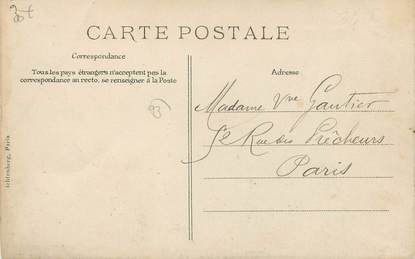 CARTE POSTALE
Correspondance
Tous les pays étrangers n'acceptent pas la
correspondance au recto, se renseigner à la Poste
Adresse
Madame Vve Gautier
Rue des Prêcheurs
Paris
Paris